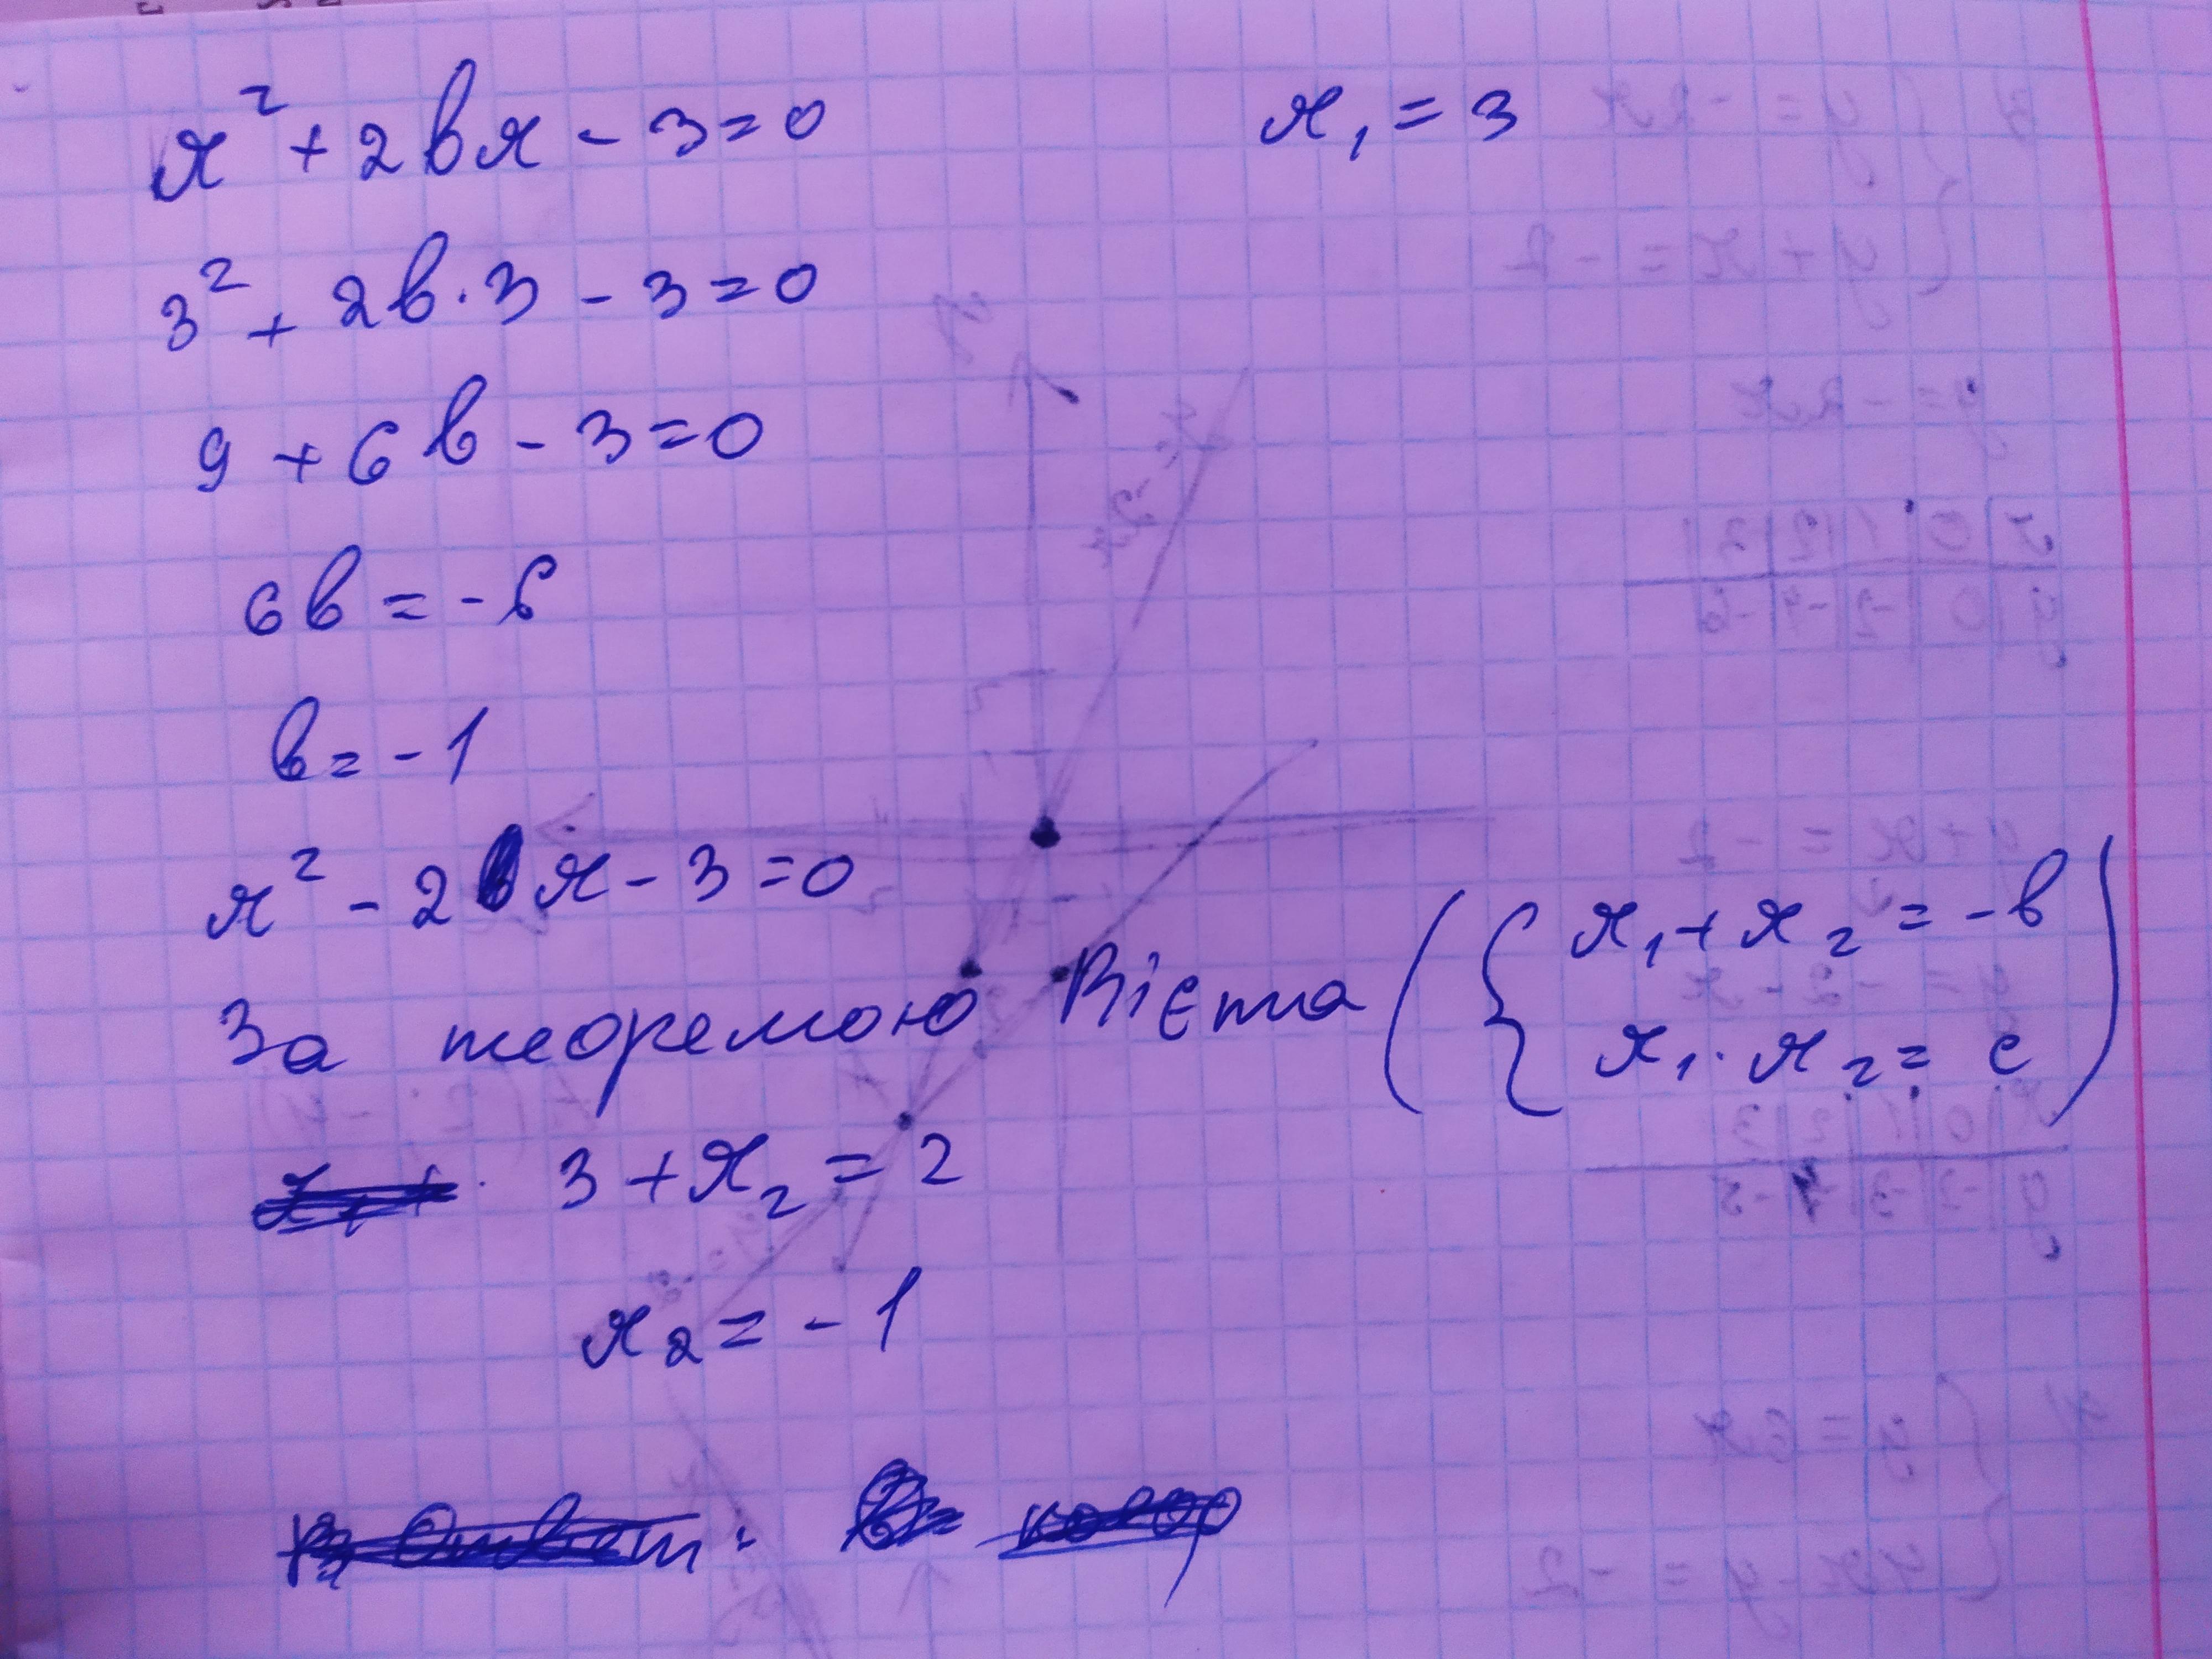 x² + 2вx - 3 = 0
x₁ = 3
3² + 2в·3 - 3 = 0
9 + 6в - 3 = 0
6в = -6
в = -1
x² - 2x - 3 = 0
За теоремою Вієта ( { x₁ + x₂ = -в
x₁ · x₂ = c )
3 + x₂ = 2
x₂ = -1